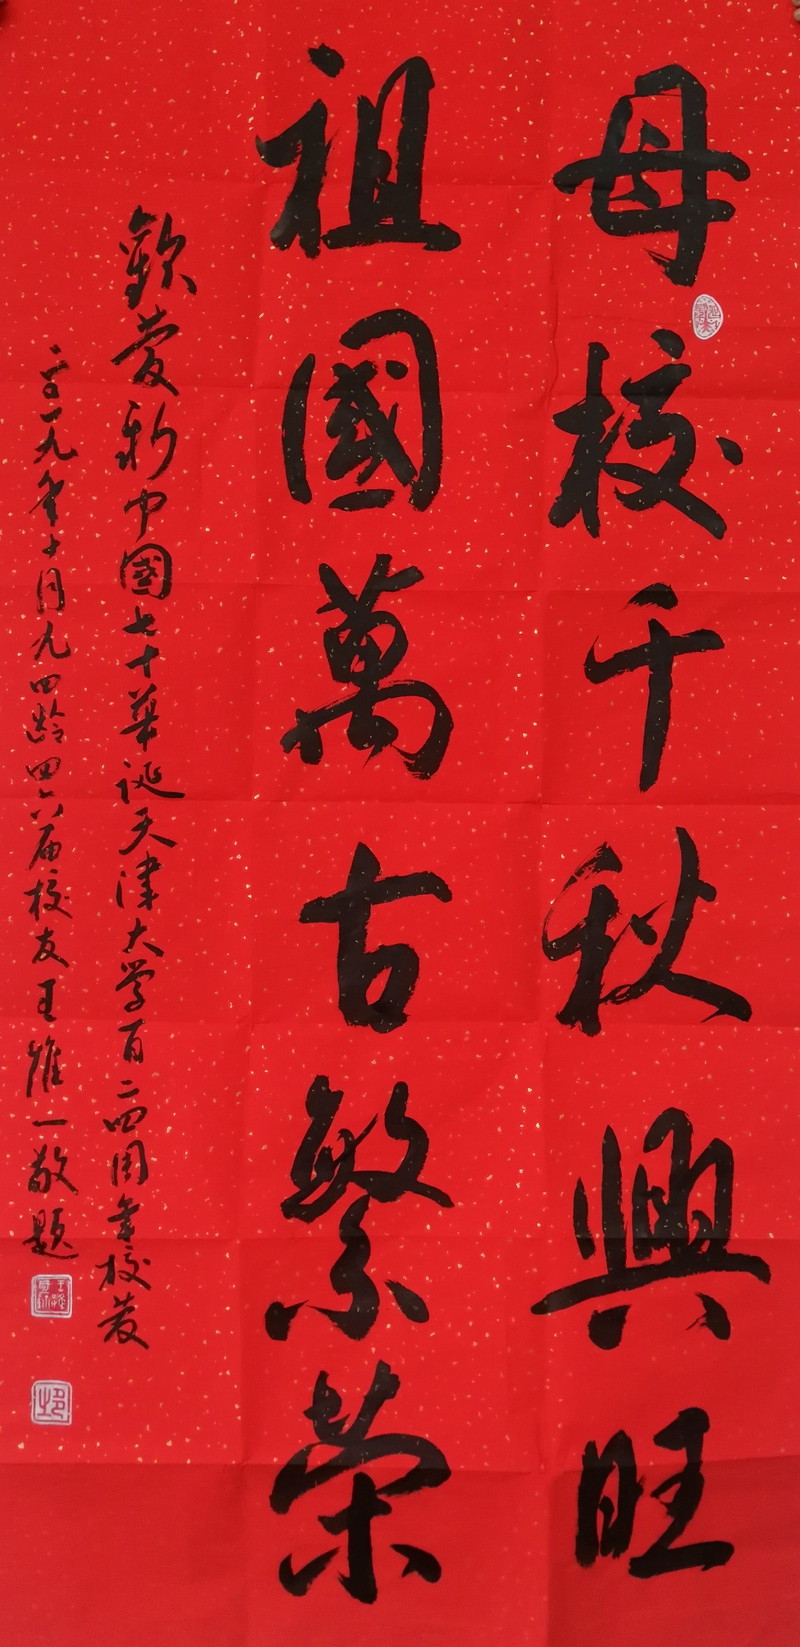 母校千秋興旺
祖國萬古繁荣
歡慶新中國七十華誕天津大学百二四周年校慶
二〇一九年十月九四龄四六届校友王维一敬题